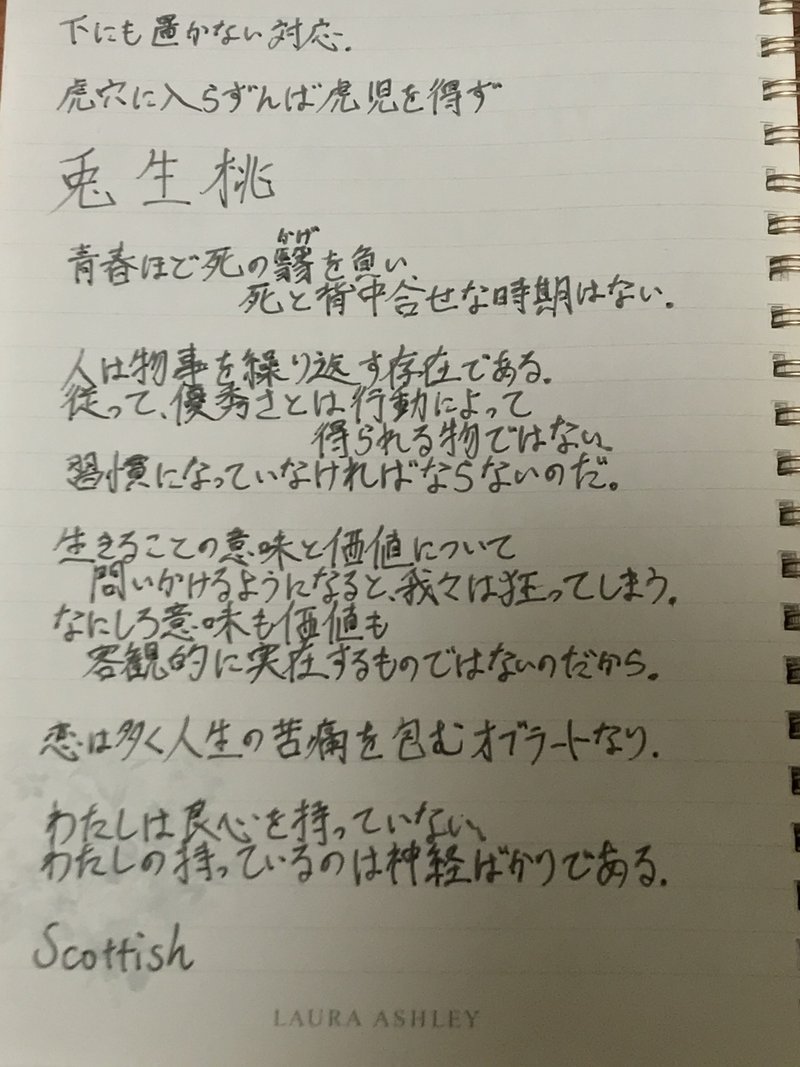 下にも置かない対応.
虎穴に入らずんば虎児を得ず
兎生桃
かげ
青春ほど死の翳を負い、
死と背中合せな時期はない.
人は物事を繰り返す存在である.
従って、優秀さとは行動によって
得られる物ではない、
習慣になっていなければならないのだ。
生きることの意味と価値について
問いかけるようになると、我々は狂ってしまう.
なにしろ意味も価値も
客観的に実在するものではないのだから.
恋は多く人生の苦痛を包むオブラートなり.
わたしは良心を持っていない、
わたしの持っているのは神経ばかりである.
Scottish
LAURA ASHLEY